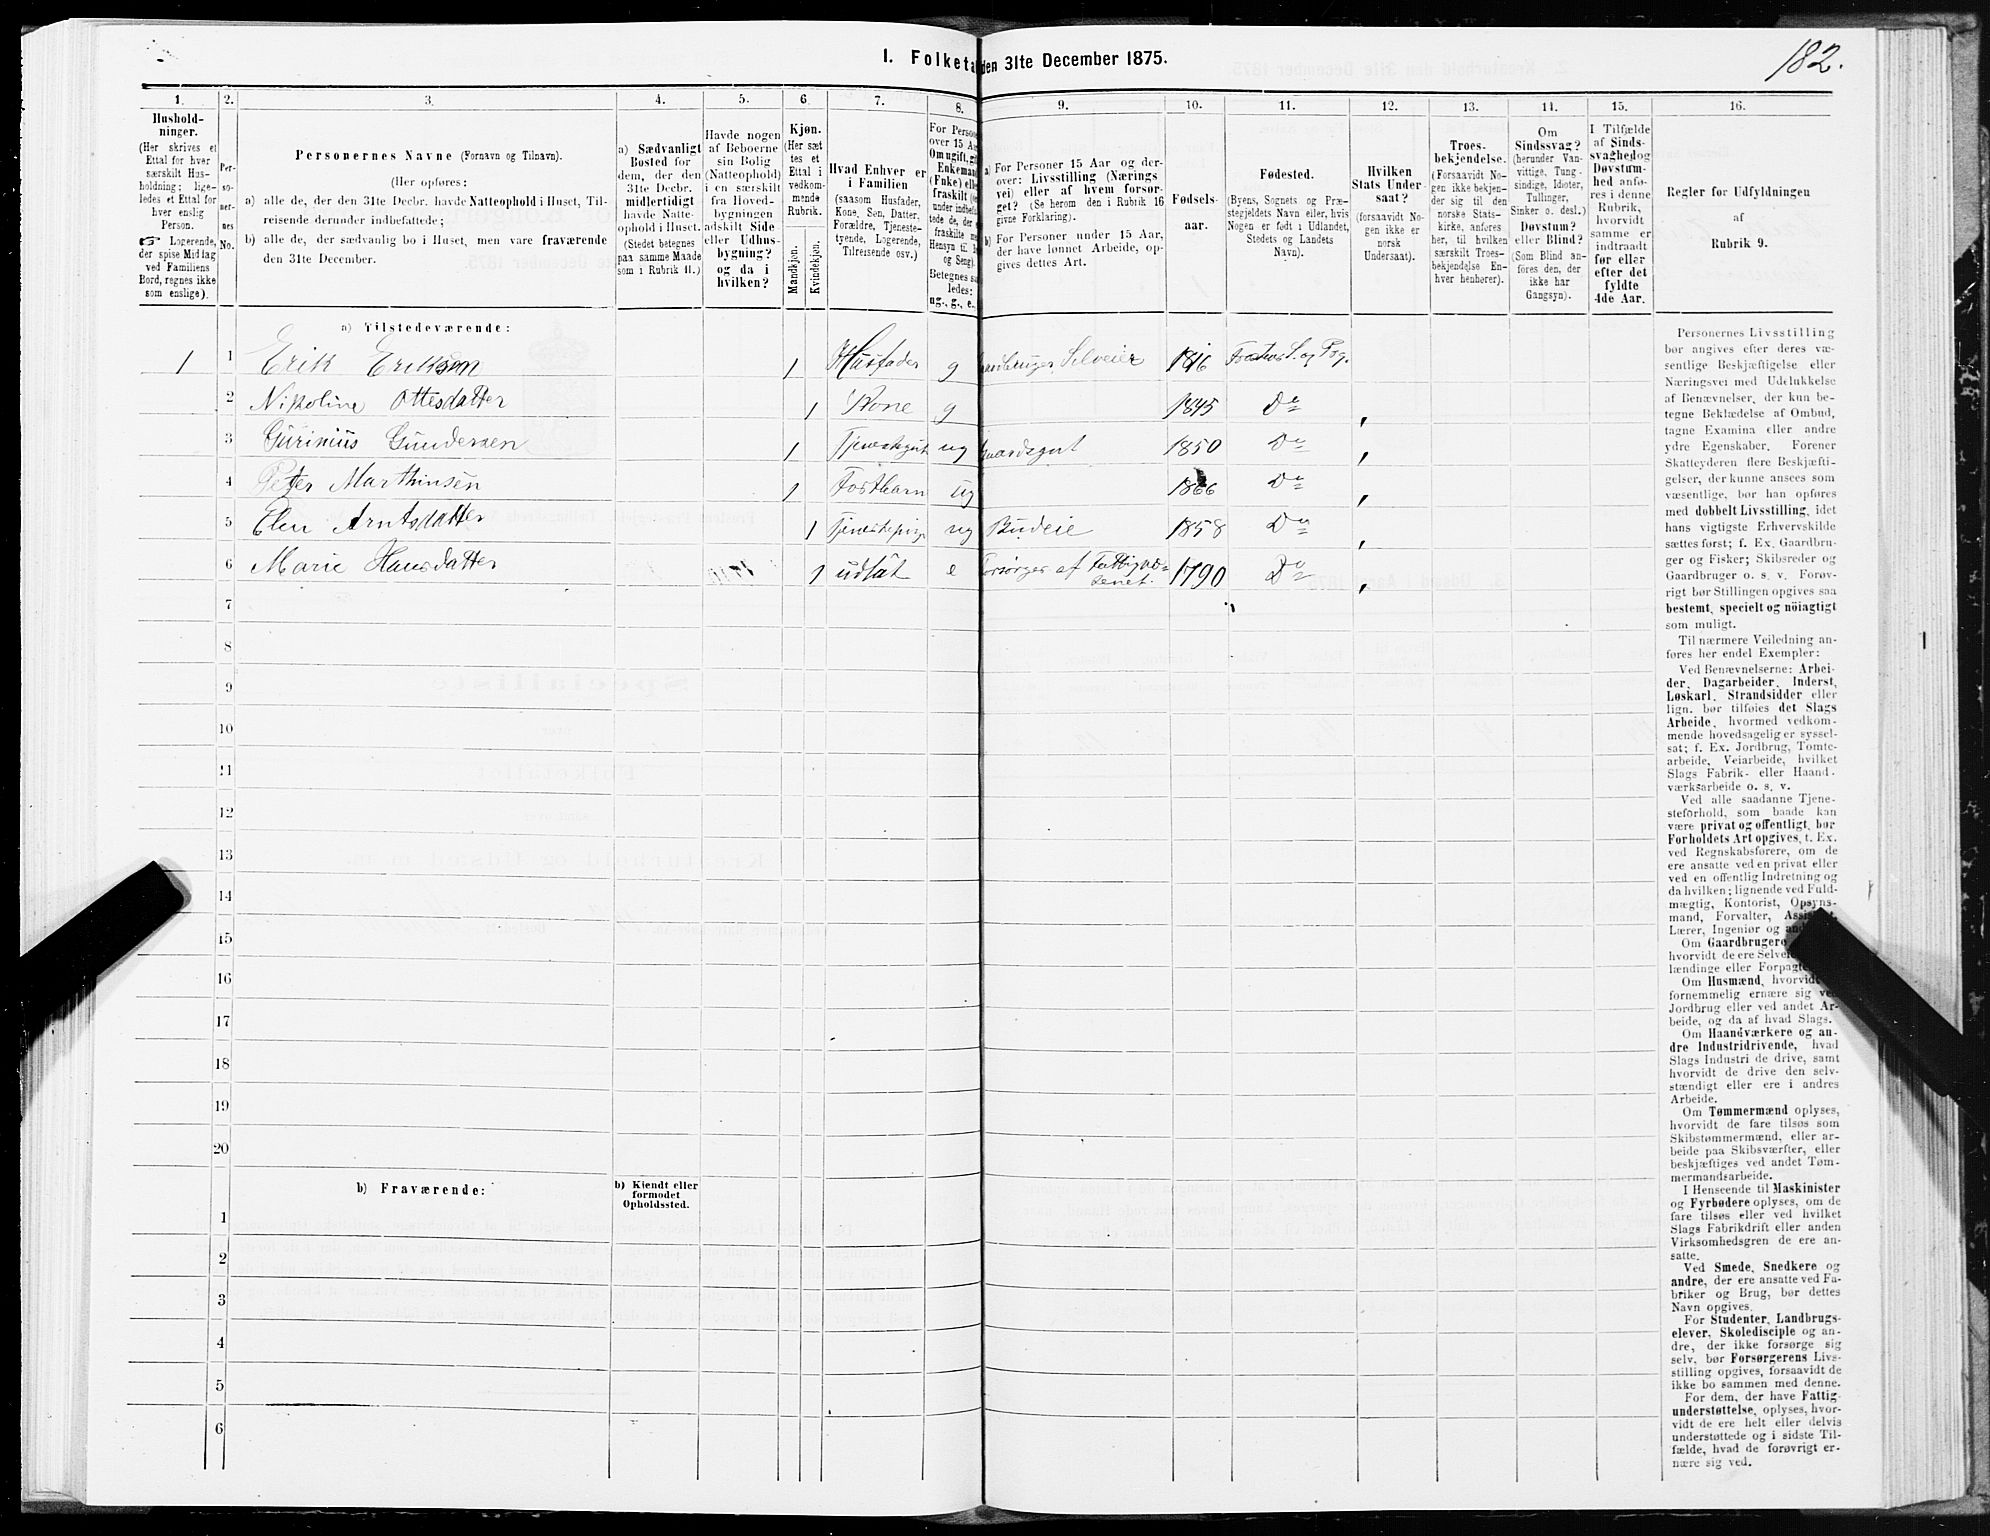 182.
1. Folketa den 31te December 1875.
1. 2. 3. 4. 5. 6. 7. 8. 9. 10. 11. 12. 13. 14. 15. 16.
Hushold-
ninger.
(Her skrives et
Ettal for hver
særskilt Hus-
holdning; lige-
ledes et Ettal for
hver enslig
Person.
☞ Logerende,
der spise Middag
ved Familiens
Bord, regnes ikke
som enslige).
Per-
so-
ner-
nes
No.
Personernes Navne (Fornavn og Tilnavn).
(Her opføres:
a) alle de, der den 31te Decbr. havde Natteophold i Huset, Til-
reisende derunder indbefattede;
b) alle de, der sædvanlig bo i Huset, men vare fraværende
den 31te December.
a) Sædvanligt
Bosted for
dem, der den
31te Decbr.
midlertidigt
havde Natte-
ophold i Huset.
(Stedet betegnes
paa samme Maade
som i Rubrik 11.)
Havde nogen
af Beboerne
sin Bolig
(Natteophold)
i en særskilt
fra Hoved-
bygningen
adskilt Side-
eller Udhus-
bygning?
og da i
hvilken?
Kjøn.
(Her sæt-
tes et
Ettal i
vedkom-
mende
Rubrik.
Mandkjøn.
Kvindekjøn.
Hvad Enhver er
i Familien
(saasom Husfader,
Kone, Søn, Datter,
Forældre, Tjeneste-
tyende, Logerende,
Tilreisende osv.)
For Persone
over 15 Aa
Om ugift, gif
Enkemand
(Enke) elle
fraskilt
under indbefat-
tede de, der e
fraskilte me
Hensyn til B
og Seng).
Betegnes sa
ledes:
ug., g., e.,
a) For Personer 15 Aar og der-
over: Livsstilling (Nærings
vei) eller af hvem forsør-
get? (Se herom den i Rubrik 16
givne Forklaring).
b) For Personer under 15 Aar,
der have lønnet Arbeide, op-
gives dettes Art.
Fødsels-
aar.
Fødested.
(Byens, Sognets og Præ-
stegjeldets Navn eller, hvis
Nogen er født i Udlandet,
Stedets og Landets
Navn).
Hvilken
Stats Under-
saat?
(forsaavidt No-
gen ikke er
norsk
Undersaat).
Troes-
bekjendelse.
(Forsaavidt No-
gen ikke bekjen-
der sig til den
norske Stats-
kirke, anføres
her, til hvilken
særskilt Troes-
bekjendelse En-
hver henhører).
Om
Sindssvag?
(herunder Van-
vittige, Tung-
sindige, Idioter,
Tullinger,
Sinker o. desl.)
Døvstum?
eller Blind?
(Som Blind an-
føres den, der
ikke har
Gangsyn).
I Tilfælde
af Sinds-
svaghed og
Døvstum-
hed anfø-
res i denne
Rubrik,
hvorvidt
samme er
indtraadt
før eller
efter det
fyldte
4de Aar.
Regler for Udfyldningen
af
Rubrik 9.
a) Tilstedeværende:
1 1 Erik Eriksen 1 Husfader g Selveier 1816 S. og Prg.
2 Nikoline Ottesdatter 1 Kone g 1845 Do
3 Gurinius Gundersen 1 Tjenestegut ug Gaardsgut 1850 Do
4 Peter Marthinsen 1 Fostbarn ug 1866 Do
5 Elen Arntsdatter 1 Tjenestepige ug Budeie 1858 Do
6 Marie Hansdatter 1 udsat e Forsørges af Fattigvæ-
senet. 1790 Do
7
8
9
10
11
12
13
14
15
16
17
18
19
20
b) Fraværende:
b) Kjendt eller
formodet
Opholdssted.
1
2
3
4
5
6
Personernes Livsstilling
bør angives efter deres væ-
sentlige Beskjæftigelse eller
Næringsvei med Udelukkelse
af Benævnelser, der kun be-
tegne Beklædelse af Ombud,
tagne Examina eller andre
ydre Egenskaber. Forener
Skatteyderen flere Beskjæfti-
gelser, der kunne ansees som
væsentlige, bør han opføres
med dobbelt Livsstilling, idet
hans vigtigste Erhvervskilde
sættes først; f. Ex. Gaardbru-
ger og Fisker; Skibsreder og
Gaardbruger o. s. v. Forøv-
rigt bør Stillingen opgives saa
bestemt, specielt og nöiagtigt
som muligt.
Til nærmere Veiledning an-
føres her endel Exempler:
Ved Benævnelserne: Arbei-
der, Dagarbeider, Inderst,
Løskarl, Strandsidder eller
lign. bør tilføies det Slags
Arbeide, hvormed vedkom-
mende hovedsagelig er syssel-
sat; f. Ex. Jordbrug, Tomte-
arbeide, Veiarbeide, hvilket
Slags Fabrik- eller Haand-
værksarbeide o. s. v.
Ved alle saadanne Tjene-
steforhold, som baade kan
være privat og offentligt, bør
Forholdets Art opgives, t. Ex.
ved Regnskabsførere, om de
ere ansatte ved en privat eller
ved en offentlig Indretning og
da hvilken; lignende ved Fuld-
mægtig, Kontorist, Opsyns-
mand, Forvalter, Assistent,
Lærer, Ingeniør og
Om Gaardbrugere
hvorvidt de ere
lændinge eller
Om Husmænd, hvorvidt
fornemmelig ernære sig ved
Jordbrug eller ved andet Ar-
beide, og da af hvad Slags.
Om Haandværkere og an-
dre Industridrivende, hvad
Slags Industri de drive, samt
hvorvidt de drive den selv-
stændigt eller ere i andres
Arbeide.
Om Tømmermænd oplyses,
hvorvidt de fare tilsøs som
Skibstømmermænd, eller ar-
beide paa Skibsværfter, eller
beskjæftiges ved andet Tøm-
mermandsarbeide.
I Henseende til Maskinister
og Fyrbødere oplyses, om de
fare tilsøs eller ved hvilket
Slags Fabrikdrift eller anden
Virksomhedsgren de ere an-
satte.
Ved Smede, Snedkere og
andre, der ere ansatte ved Fa-
briker og Brug, bør dettes
Navn opgives.
For Studenter, Landbrugs-
elever, Skoledisciple og an-
dre, der ikke forsørge sig
selv, bør Forsørgerens Livs-
stilling opgives, forsaavidt de
ikke bo sammen med denne.
For dem, der have Fattig-
understøttelse, oplyses, hvor-
vidt de ere helt eller delvis
understøttede og i sidste Til-
fælde, hvad de forøvrigt er-
nære sig ved.